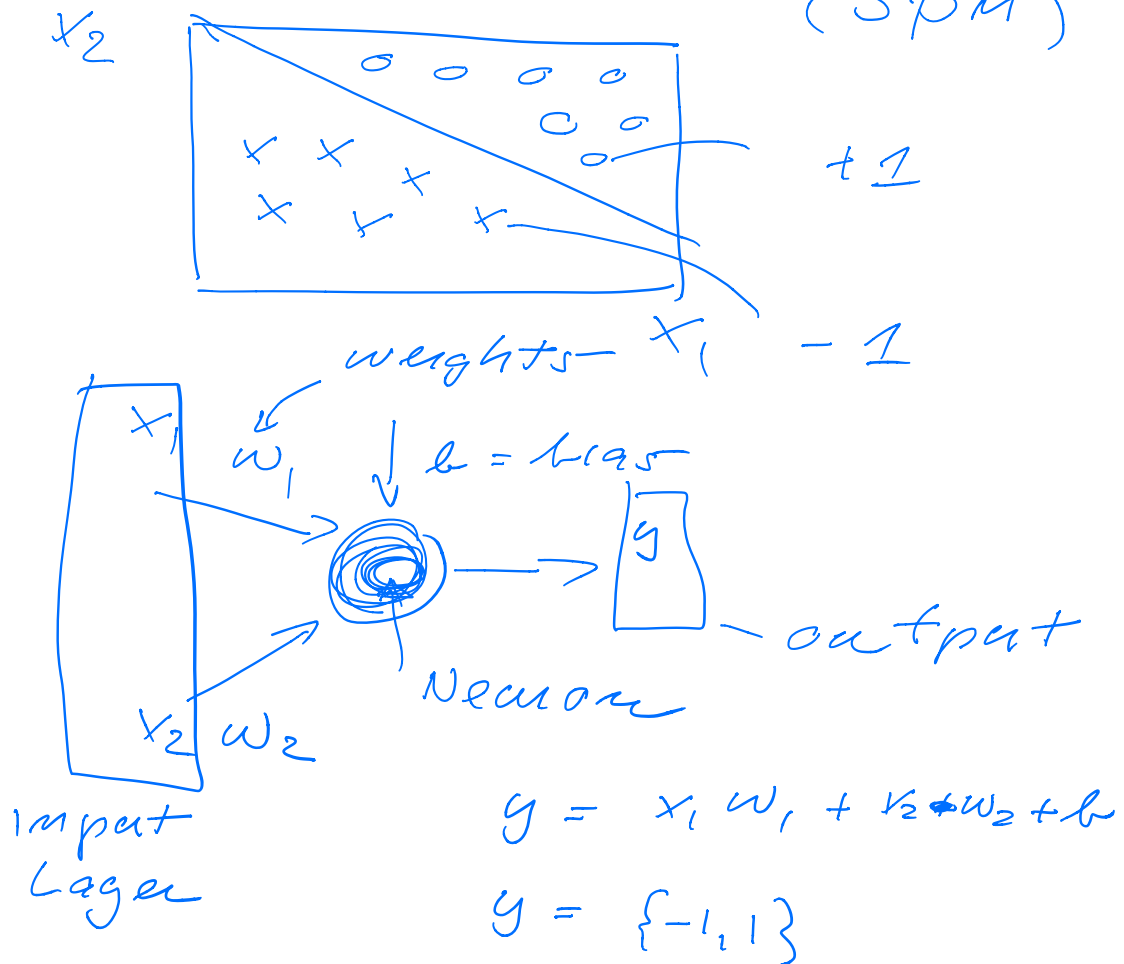 (SPM)
x₂
+1
x₁
-1
weights
x₁
w₁
b = bias
y
output
Neuron
x₂ w₂
Input
Layer
y = x₁ w₁ + x₂ * w₂ + b
y = {-1, 1}